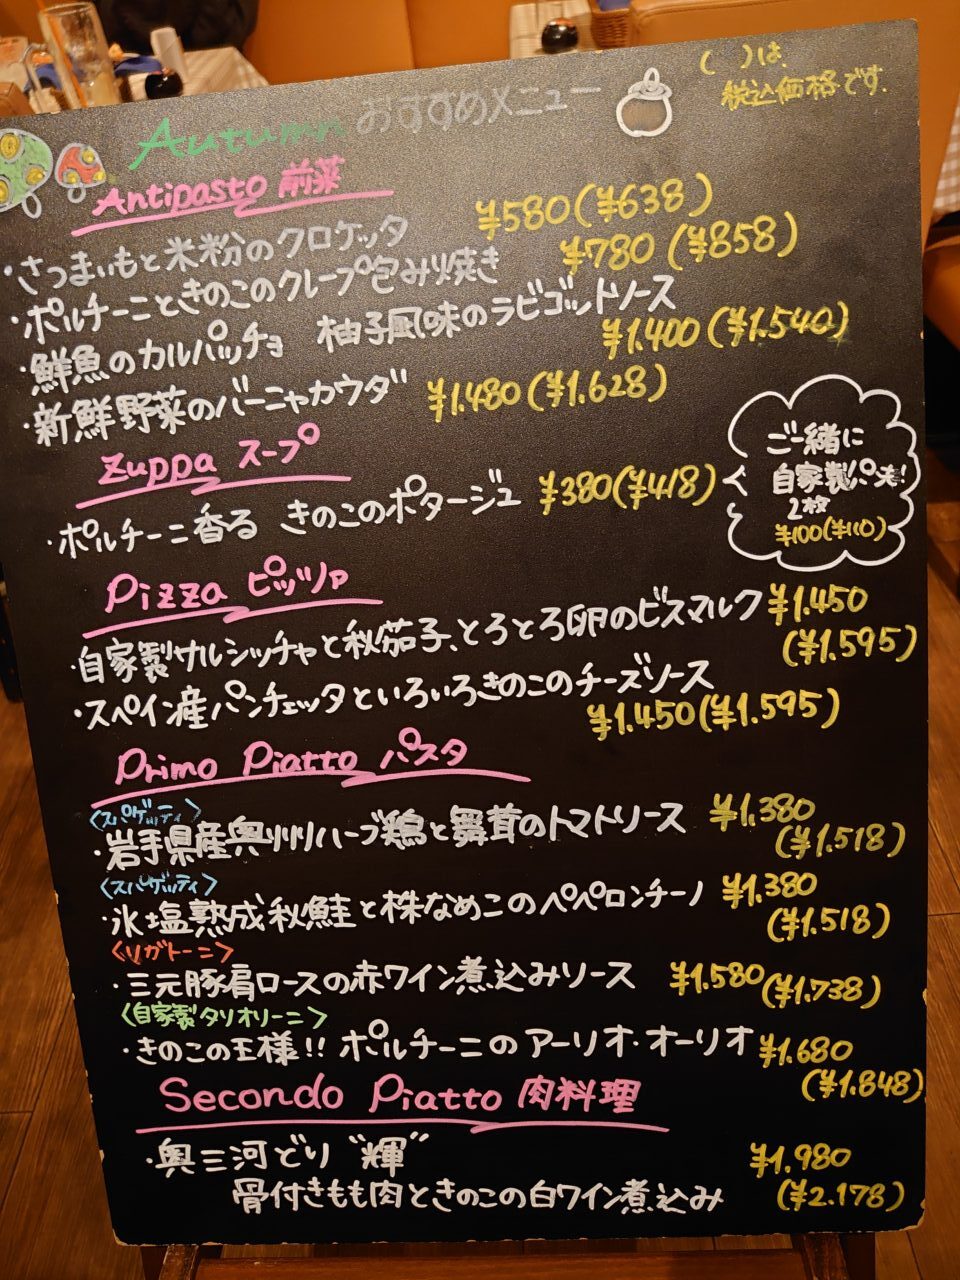 ( )は
税込価格です.
Autumn おすすめメニュー
Antipasto 前菜
・さつまいもと米粉のクロケッタ ¥580(¥638)
・ポルチーニときのこのクレープ包み焼き ¥780(¥858)
・鮮魚のカルパッチョ 柚子風味のラビゴットソース
¥1.400(¥1.540)
・新鮮野菜のバーニャカウダ ¥1.480(¥1.628)
Zuppa スープ
・ポルチーニ香る きのこのポタージュ ¥380(¥418)
ご一緒に
自家製パンを!
2枚
¥100(¥110)
Pizza ピッツァ
・自家製サルシッチャと秋茄子、とろとろ卵のビスマルク ¥1.450
(¥1.595)
・スペイン産パンチェッタといろいろきのこのチーズソース
¥1.450(¥1.595)
Primo Piatto パスタ
<スパゲッティ>
・岩手県産奥州ハーブ鶏と舞茸のトマトソース ¥1.380
(¥1.518)
<スパゲッティ>
・氷塩熟成秋鮭と株なめこのペペロンチーノ ¥1.380
(¥1.518)
<リガトーニ>
・三元豚肩ロースの赤ワイン煮込みソース ¥1.580(¥1.738)
<自家製タリオリーニ>
・きのこの王様!! ポルチーニのアーリオ・オーリオ ¥1.680
(¥1.848)
Secondo Piatto 肉料理
・奥三河どり "輝" ¥1.980
骨付きもも肉ときのこの白ワイン煮込み (¥2.178)